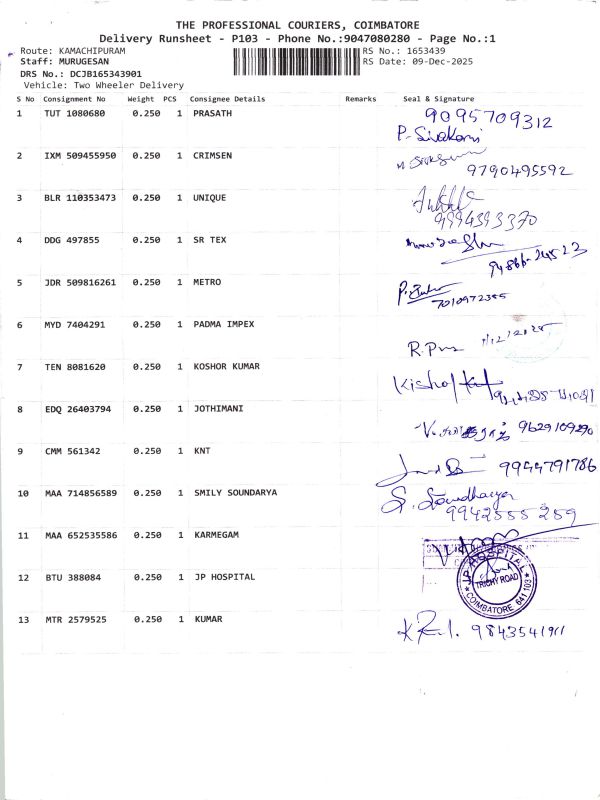 THE PROFESSIONAL COURIERS, COIMBATORE
Delivery Runsheet - P103 - Phone No.:9047080280 - Page No.:1
Route: KAMACHIPURAM RS No.: 1653439
Staff: MURUGESAN RS Date: 09-Dec-2025
DRS No.: DCJB165343901
Vehicle: Two Wheeler Delivery
S No Consignment No Weight PCS Consignee Details Remarks Seal & Signature
1 TUT 1080680 0.250 1 PRASATH 9095709312
P. Sivakami
2 IXM 509455950 0.250 1 CRIMSEN 9790495592
3 BLR 110353473 0.250 1 UNIQUE
9994393370
4 DDG 497855 0.250 1 SR TEX
94866-24523
5 JDR 509816261 0.250 1 METRO
7010972385
6 MYD 7404291 0.250 1 PADMA IMPEX
R.
7 TEN 8081620 0.250 1 KOSHOR KUMAR
8 EDQ 26403794 0.250 1 JOTHIMANI 9629109290
9 CMM 561342 0.250 1 KNT 9944791786
10 MAA 714856589 0.250 1 SMILY SOUNDARYA S. Soundharya
9942555259
11 MAA 652535586 0.250 1 KARMEGAM
12 BTU 388084 0.250 1 JP HOSPITAL JP HOSPITAL
TRICHY ROAD
COIMBATORE 641 103
13 MTR 2579525 0.250 1 KUMAR 9843541911